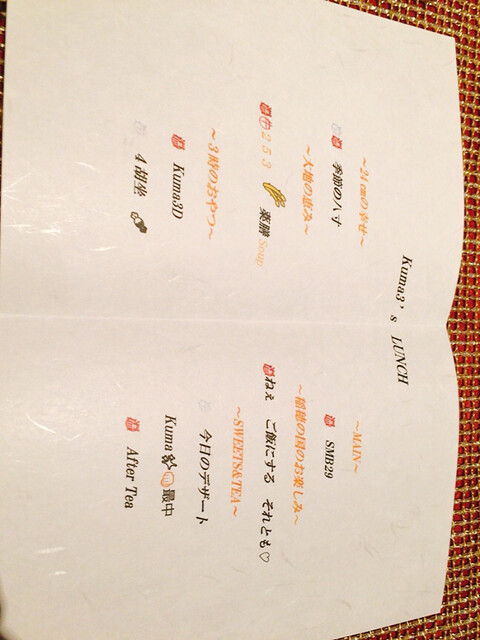 Kuma3's LUNCH
～24㎝の幸せ～
季節の八寸
～大地の恵み～
253 薬膳 Soup
～3時のおやつ～
Kuma3D
4胡坐
～MAIN～
SMB29
～稲穂の国のお楽しみ～
ねぇ ご飯にする それとも♡
～SWEETS&TEA～
今日のデザート
Kuma 最中
After Tea